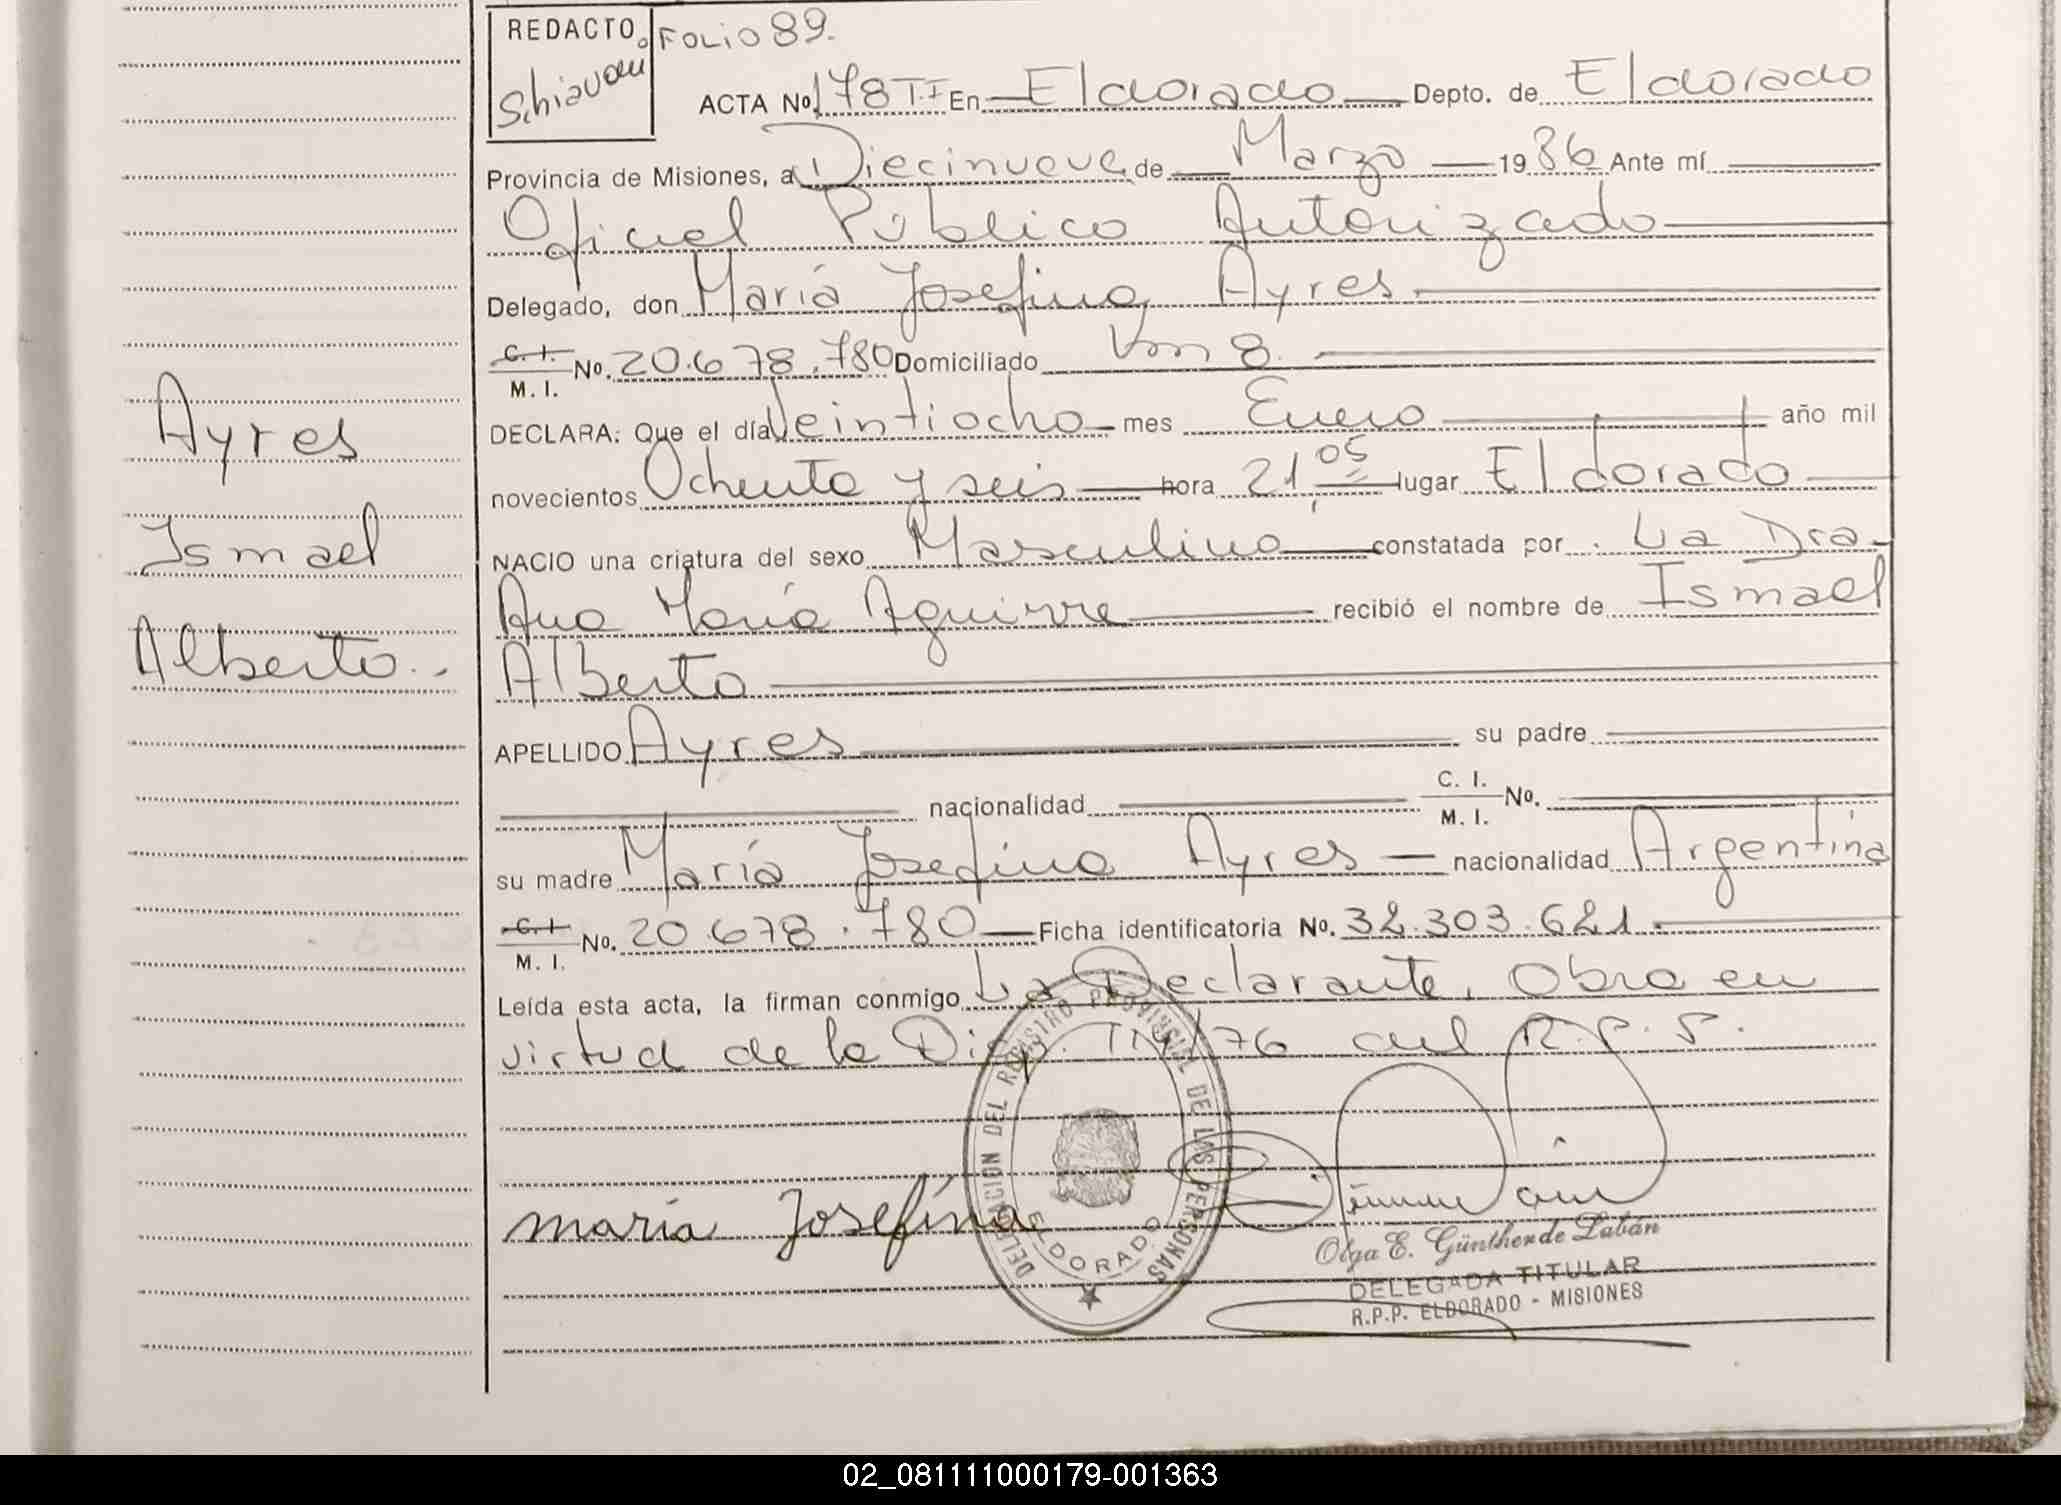 REDACTO. FOLIO 89.
Schiavoni
ACTA No. 178 T.I En Eldorado Depto. de Eldorado
Provincia de Misiones, a Diecinueve de Marzo 1986 Ante mí
Oficial Público Autorizado
Delegado, don María Josefina Ayres.
C. I.
M. I. No. 20.678.780 Domiciliado Km 8.
DECLARA: Que el día Veintiocho mes Enero año mil
novecientos Ochenta y seis hora 21,05 lugar Eldorado
NACIO una criatura del sexo Masculino constatada por La Dra
Ana María Aguirre recibió el nombre de Ismael
Alberto
APELLIDO Ayres su padre
nacionalidad C. I.
M. I. No.
su madre María Josefina Ayres nacionalidad Argentina
C. I.
M. I. No. 20.678.780 Ficha identificatoria No. 32.303.621.
Leída esta acta, la firman conmigo La Declarante, Obra en
virtud de la Disp. /76 del R.P.P.
Ayres
Ismael
Alberto.
maría Josefína
DELEGACION DEL REGISTRO PROVINCIAL DE LAS PERSONAS
ELDORADO
Olga E. Günther de Labán
DELEGADA TITULAR
R.P.P. ELDORADO - MISIONES
02_081111000179-001363